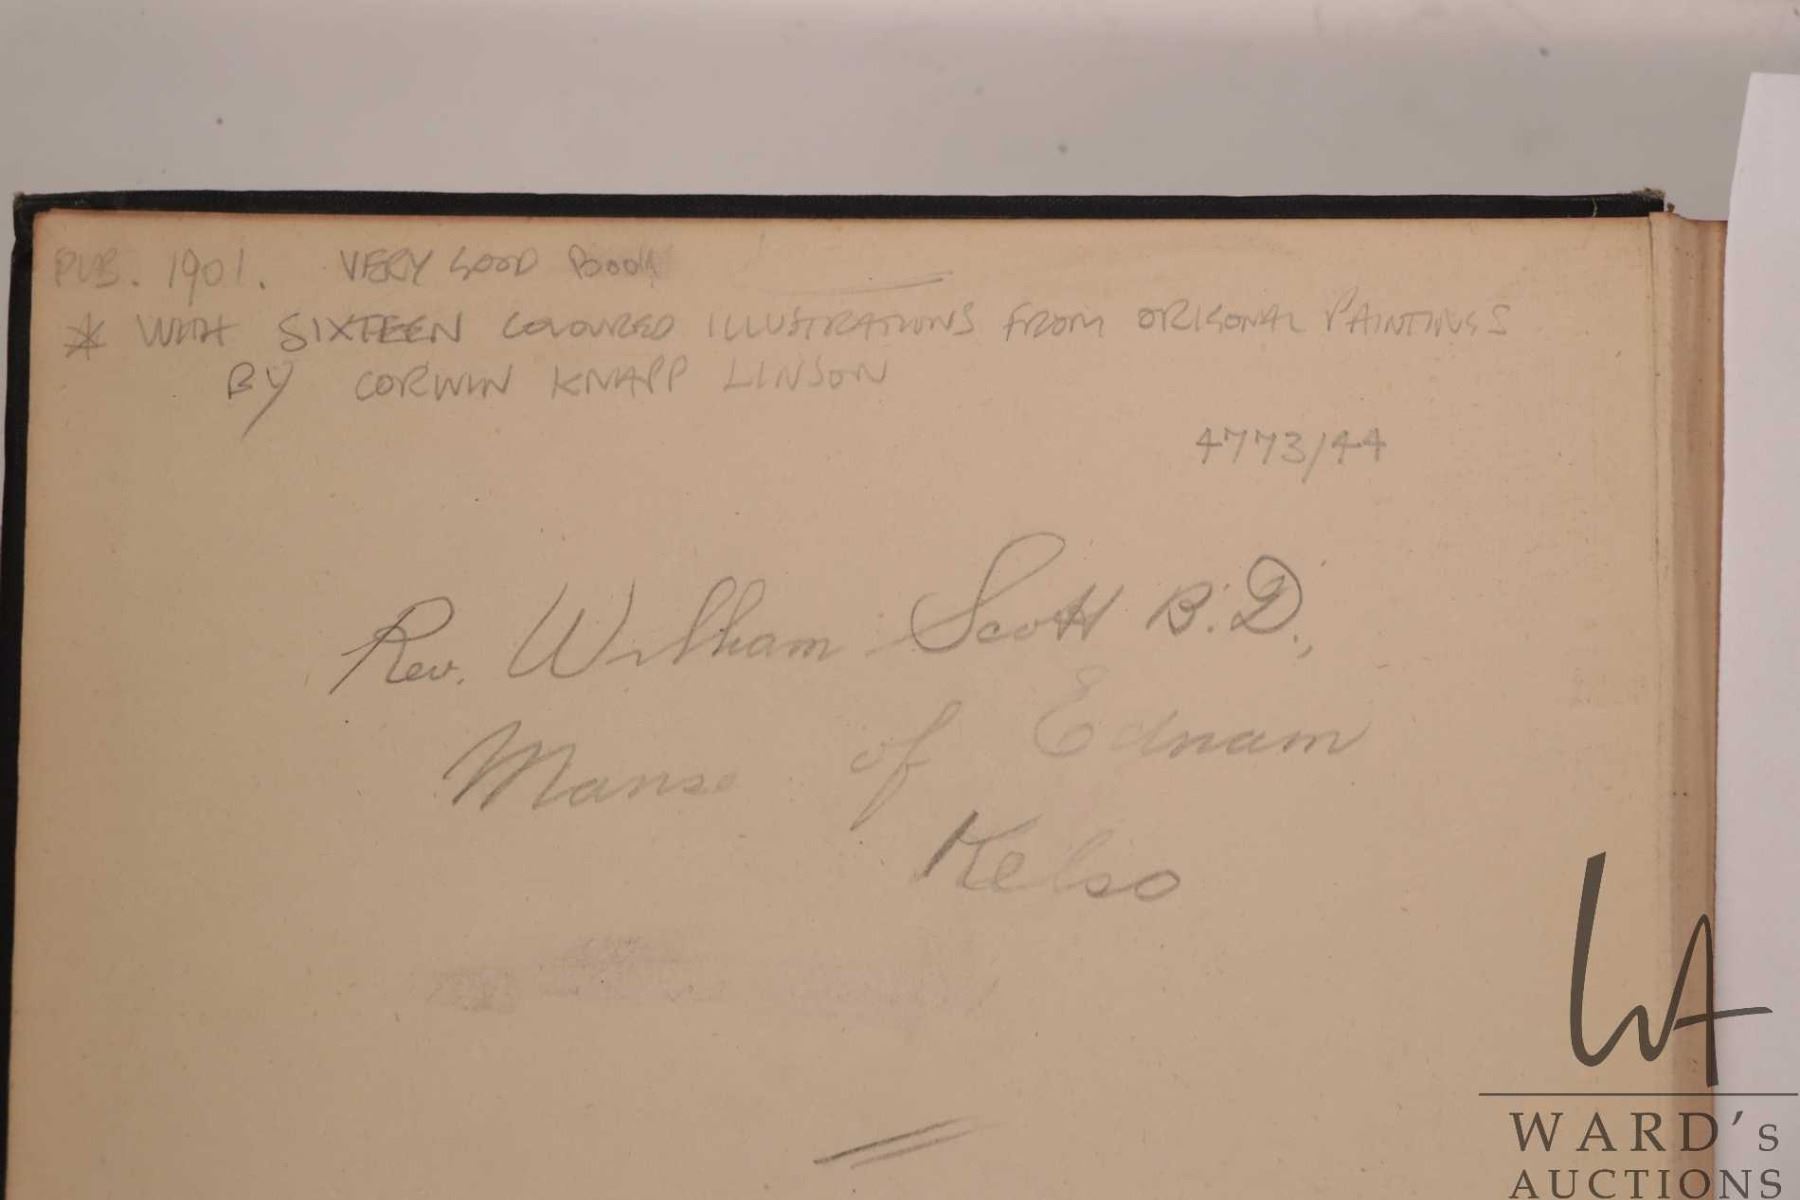 PUB. 1901. VERY GOOD BOOK
* WITH SIXTEEN COLOURED ILLUSTRATIONS FROM ORIGONAL PAINTINGS
BY CORWIN KNAPP LINSON
4773/44
Rev. William Scott B.D.,
Manse of Ednam
Kelso
WA
WARD's
AUCTIONS